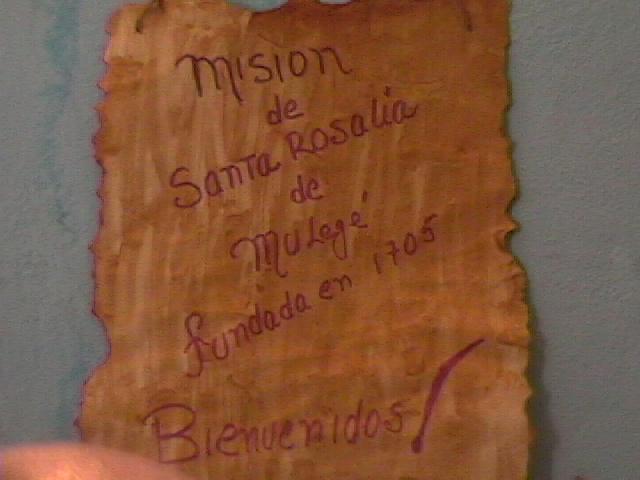 Mision
de
Santa Rosalia
de
Mulegé
fundada en 1705
Bienvenidos!